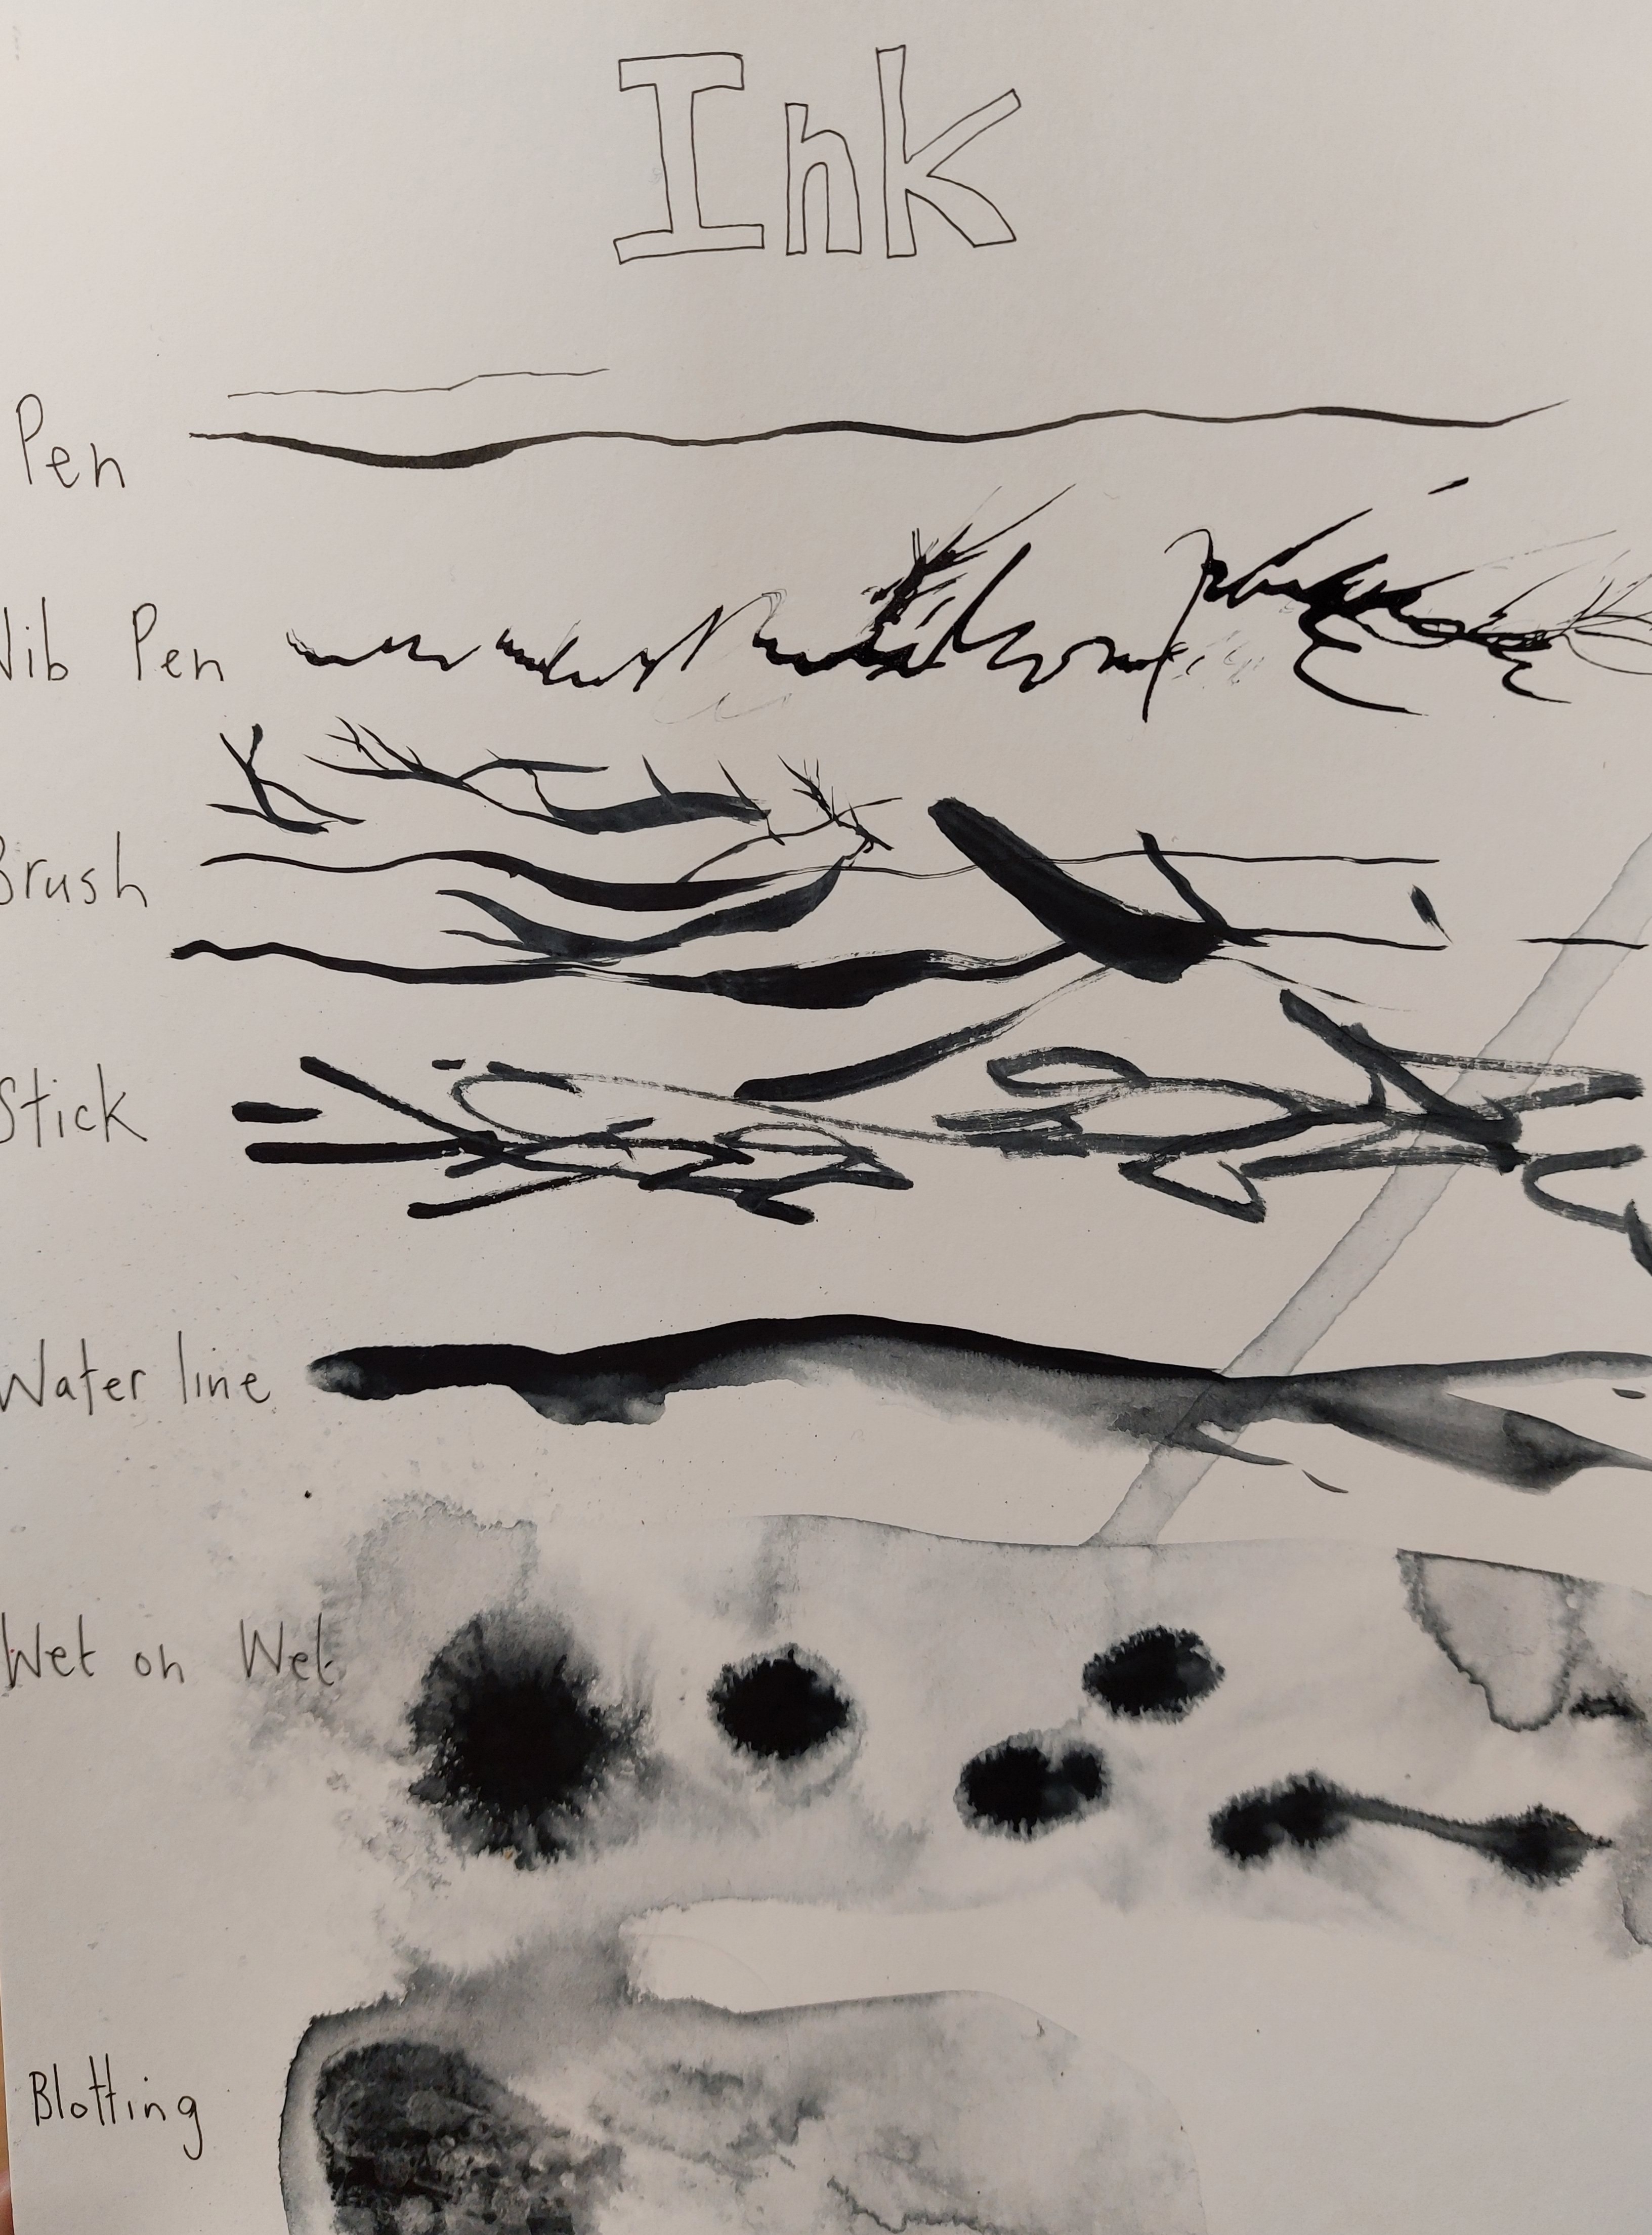 Ink
Pen
Nib Pen
Brush
Stick
Water line
Wet on Wet
Blotting